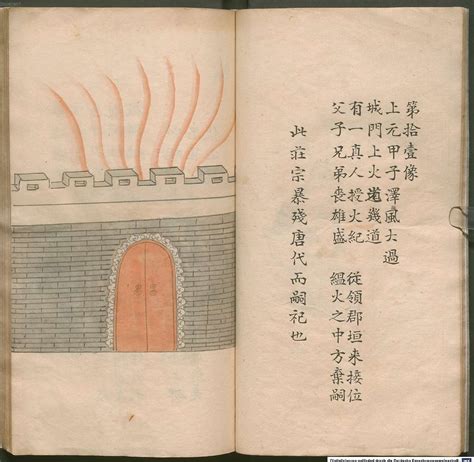 第拾壹像
上元甲子澤風大過
城門上火幾道
有一真人授火紀　從領郡垣來接位
父子兄弟喪雄盛　縕火之中方棄嗣
此莊宗暴殘唐代而嗣祀也
Digitalisierung gefördert durch die Deutsche Forschungsgemeinschaft